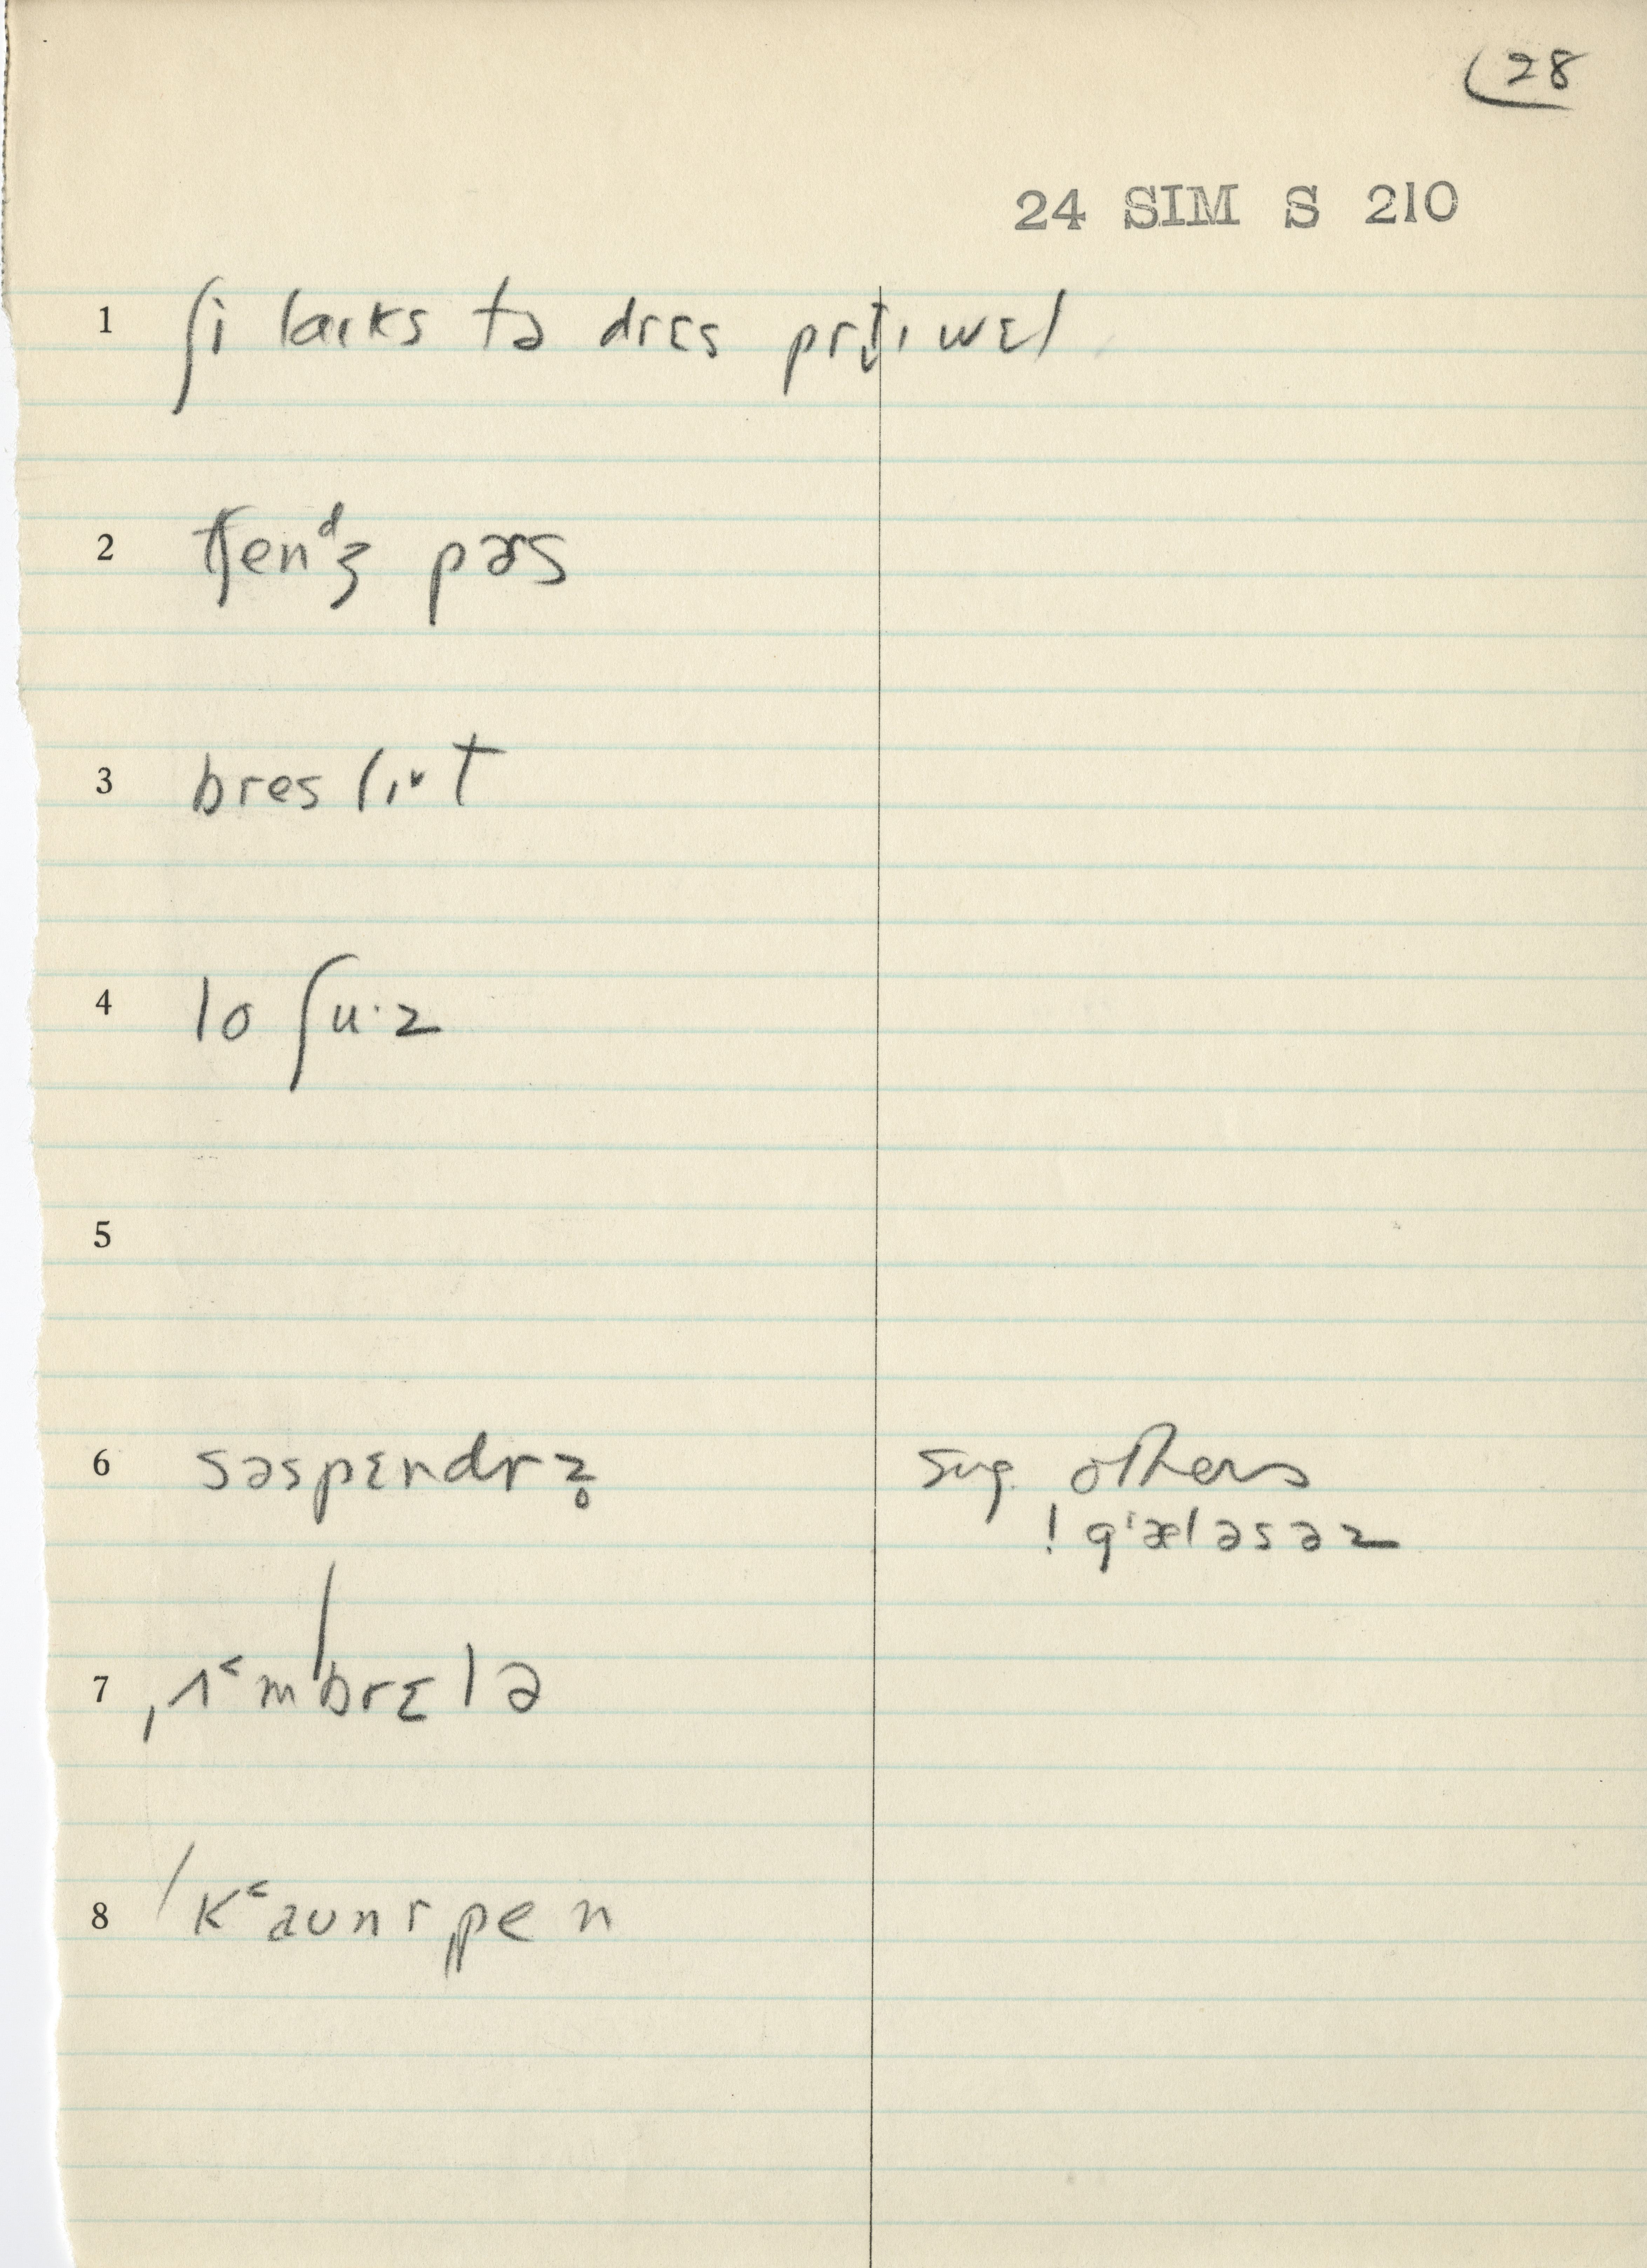 28
24 SIM S 210
1 ʃi laɪks tə drɛs prɪt̬ɪ wɛl
2 tʃend̠ʒ pɚs
3 breslɪᵛt
4 lo ʃu·z
5
6 səspɛndrz̥ sug. others
! gˈæləsəz
7 ˌʌ˂mˈbrɛlə
8 ˈk˂aʊnrˌpen